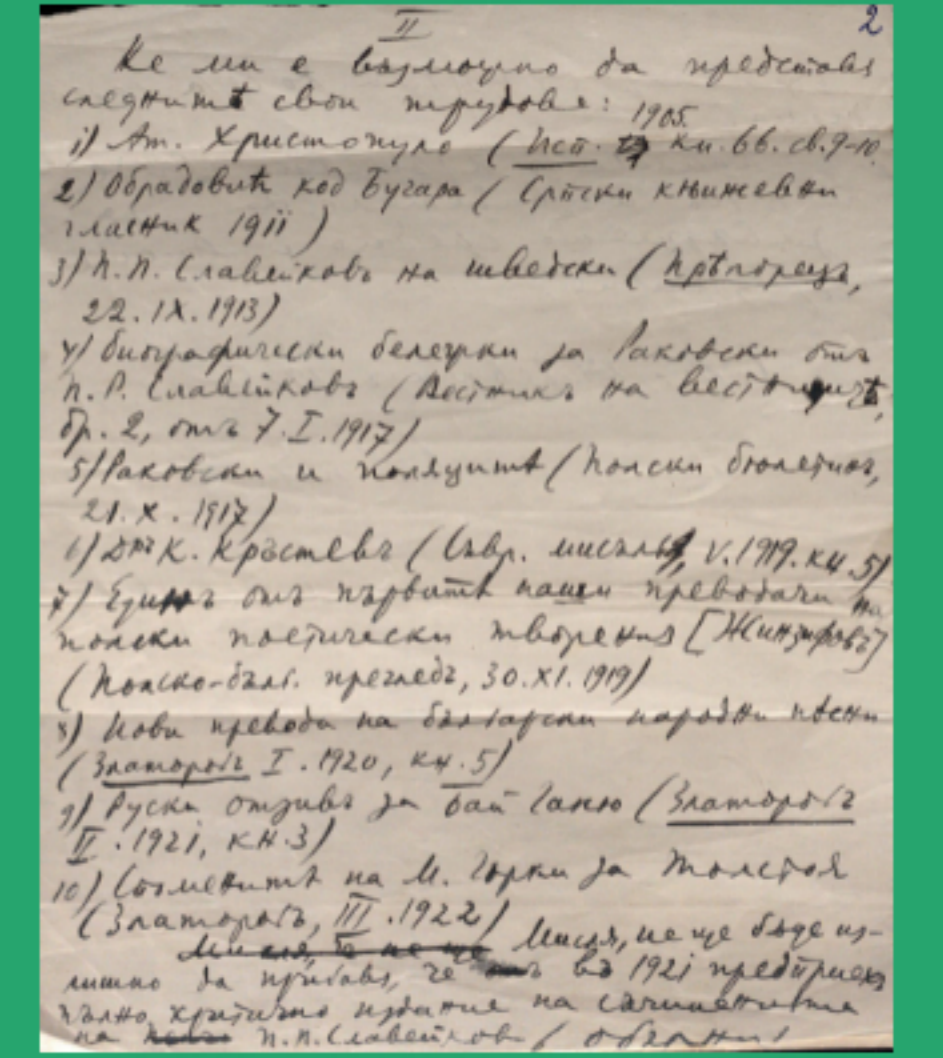 II 2
Не ми е възможно да представя
следнитѣ свои трудове:
1905
1) Ат. Христопуло ( кн. 66. св. 9-10.
2) Обрадовић код Бугара ( Српски књижевни
гласник 1911 )
3) П. П. Славейковъ на шведски ( Прѣпорецъ,
22. IX. 1913)
4) Биографически белѣжки за Раковски отъ
П. Р. Славейковъ ( Вестникъ на
бр. 2, отъ 7. I. 1917)
5) Раковски и поляцитѣ ( Полски бюлетинъ,
21. X. 1917)
6) Д-ръ К. Кръстевъ ( Съвр. мисъль, V. 1919. кн. 5)
7) Единъ отъ първитѣ наши преводачи на
полски поетически творения [Жинзифовъ]
( Полско-бълг. прегледъ, 30. XI. 1919)
8) Нови преводи на български народни пѣсни
( Златорогъ I. 1920, кн. 5)
9) Руски отзивъ за Бай Ганю ( Златорогъ
II. 1921, кн. 3)
10) Споменитѣ на М. Горки за Толстоя
( Златорогъ, III. 1922)
Мисля, не ще бѫде из-
лишно да прибавя, че въ 1921 предприехъ
пълно, критично издание на съчиненията
на П. П. Славейков (